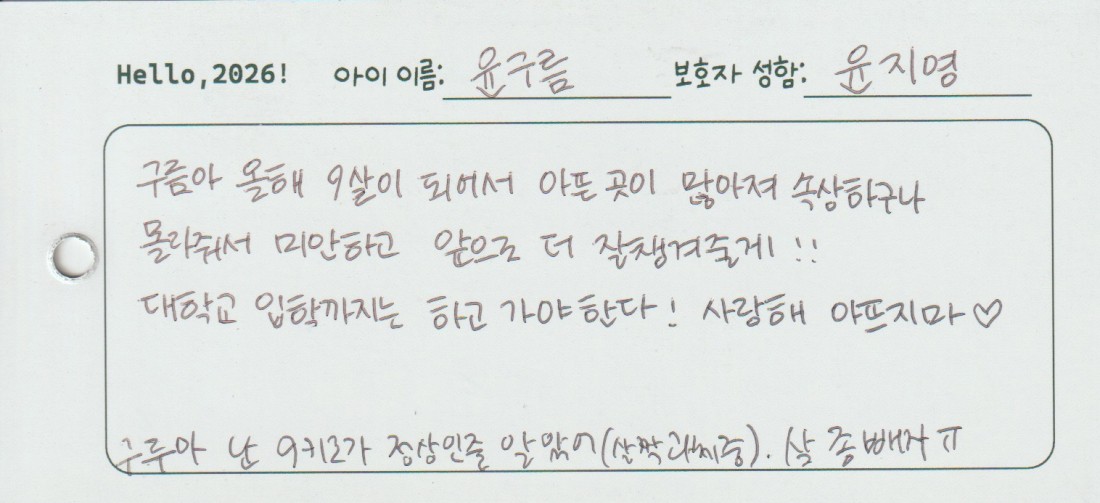 Hello, 2026! 아이 이름: 윤구름 보호자 성함: 윤지영
구름아 올해 9살이 되어서 아픈 곳이 많아져 속상하구나
몰라줘서 미안하고 앞으로 더 잘챙겨줄게!!
대학교 입학까지는 하고 가야한다! 사랑해 아프지마♡
구루마 난 9키로가 정상인줄 알았어(살짝 과체중). 살 좀 빼자ㅠ